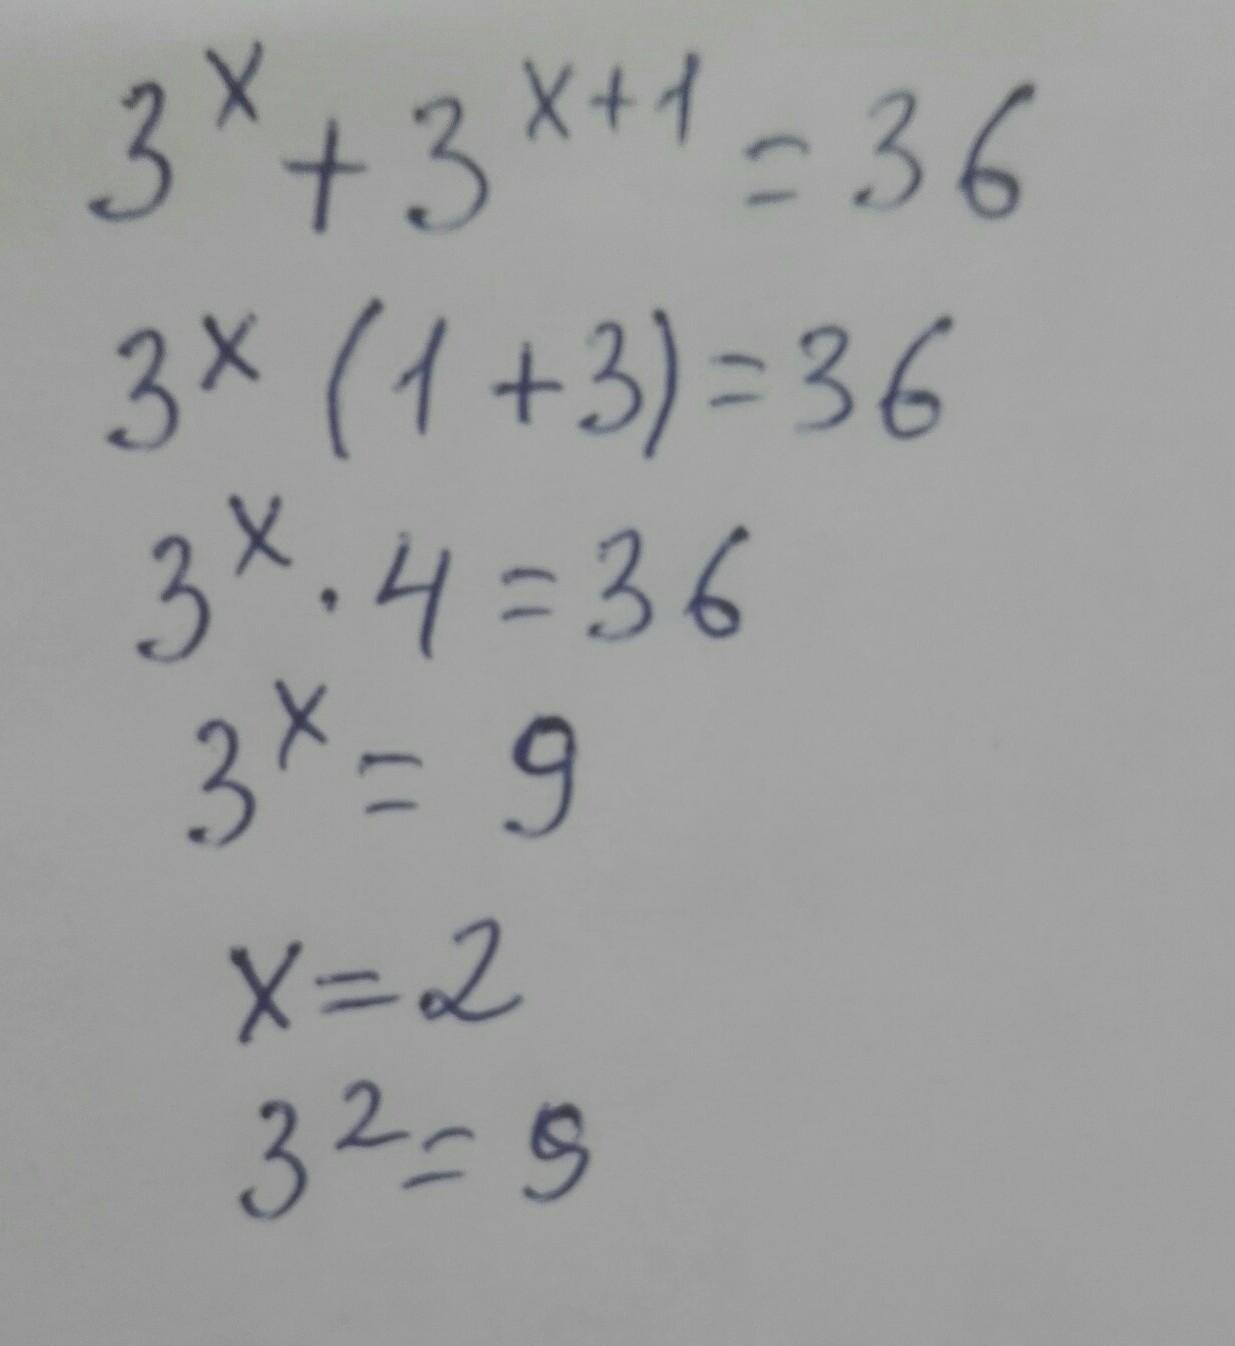 3^x + 3^{x+1} = 36
3^x (1 + 3) = 36
3^x · 4 = 36
3^x = 9
x = 2
3^2 = 9